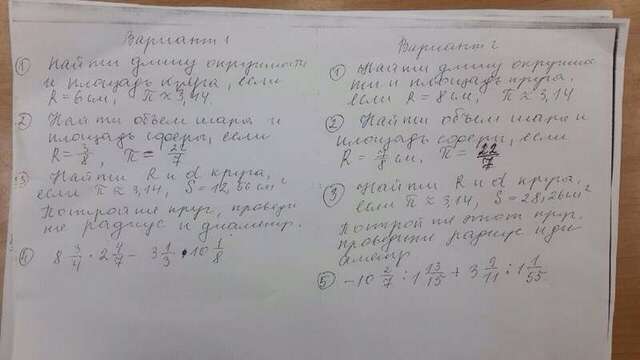 Вариант 1
① Найти длину окружности
и площадь круга, если
R = 6 см, π ≈ 3,14.
② Найти объем шара и
площадь сферы, если
R = 3/8, π = 22/7
③ Найти R и d круга,
если π ≈ 3,14, S = 12,56 см²
Постройте круг, проведи
те радиус и диаметр.
④ 8 3/4 · 2 4/7 − 3 1/3 · 10 1/8
Вариант 2
① Найти длину окружнос
ти и площадь круга,
если R = 8 см, π ≈ 3,14
② Найти объем шара и
площадь сферы, если
R = см, π = 22/7
③ Найти R и d круга,
если π ≈ 3,14, S = 28,26 см²
Постройте этот круг,
проведите радиус и ди
аметр
⑤ −10 2/7 : 1 13/15 + 3 9/11 : 1 1/55